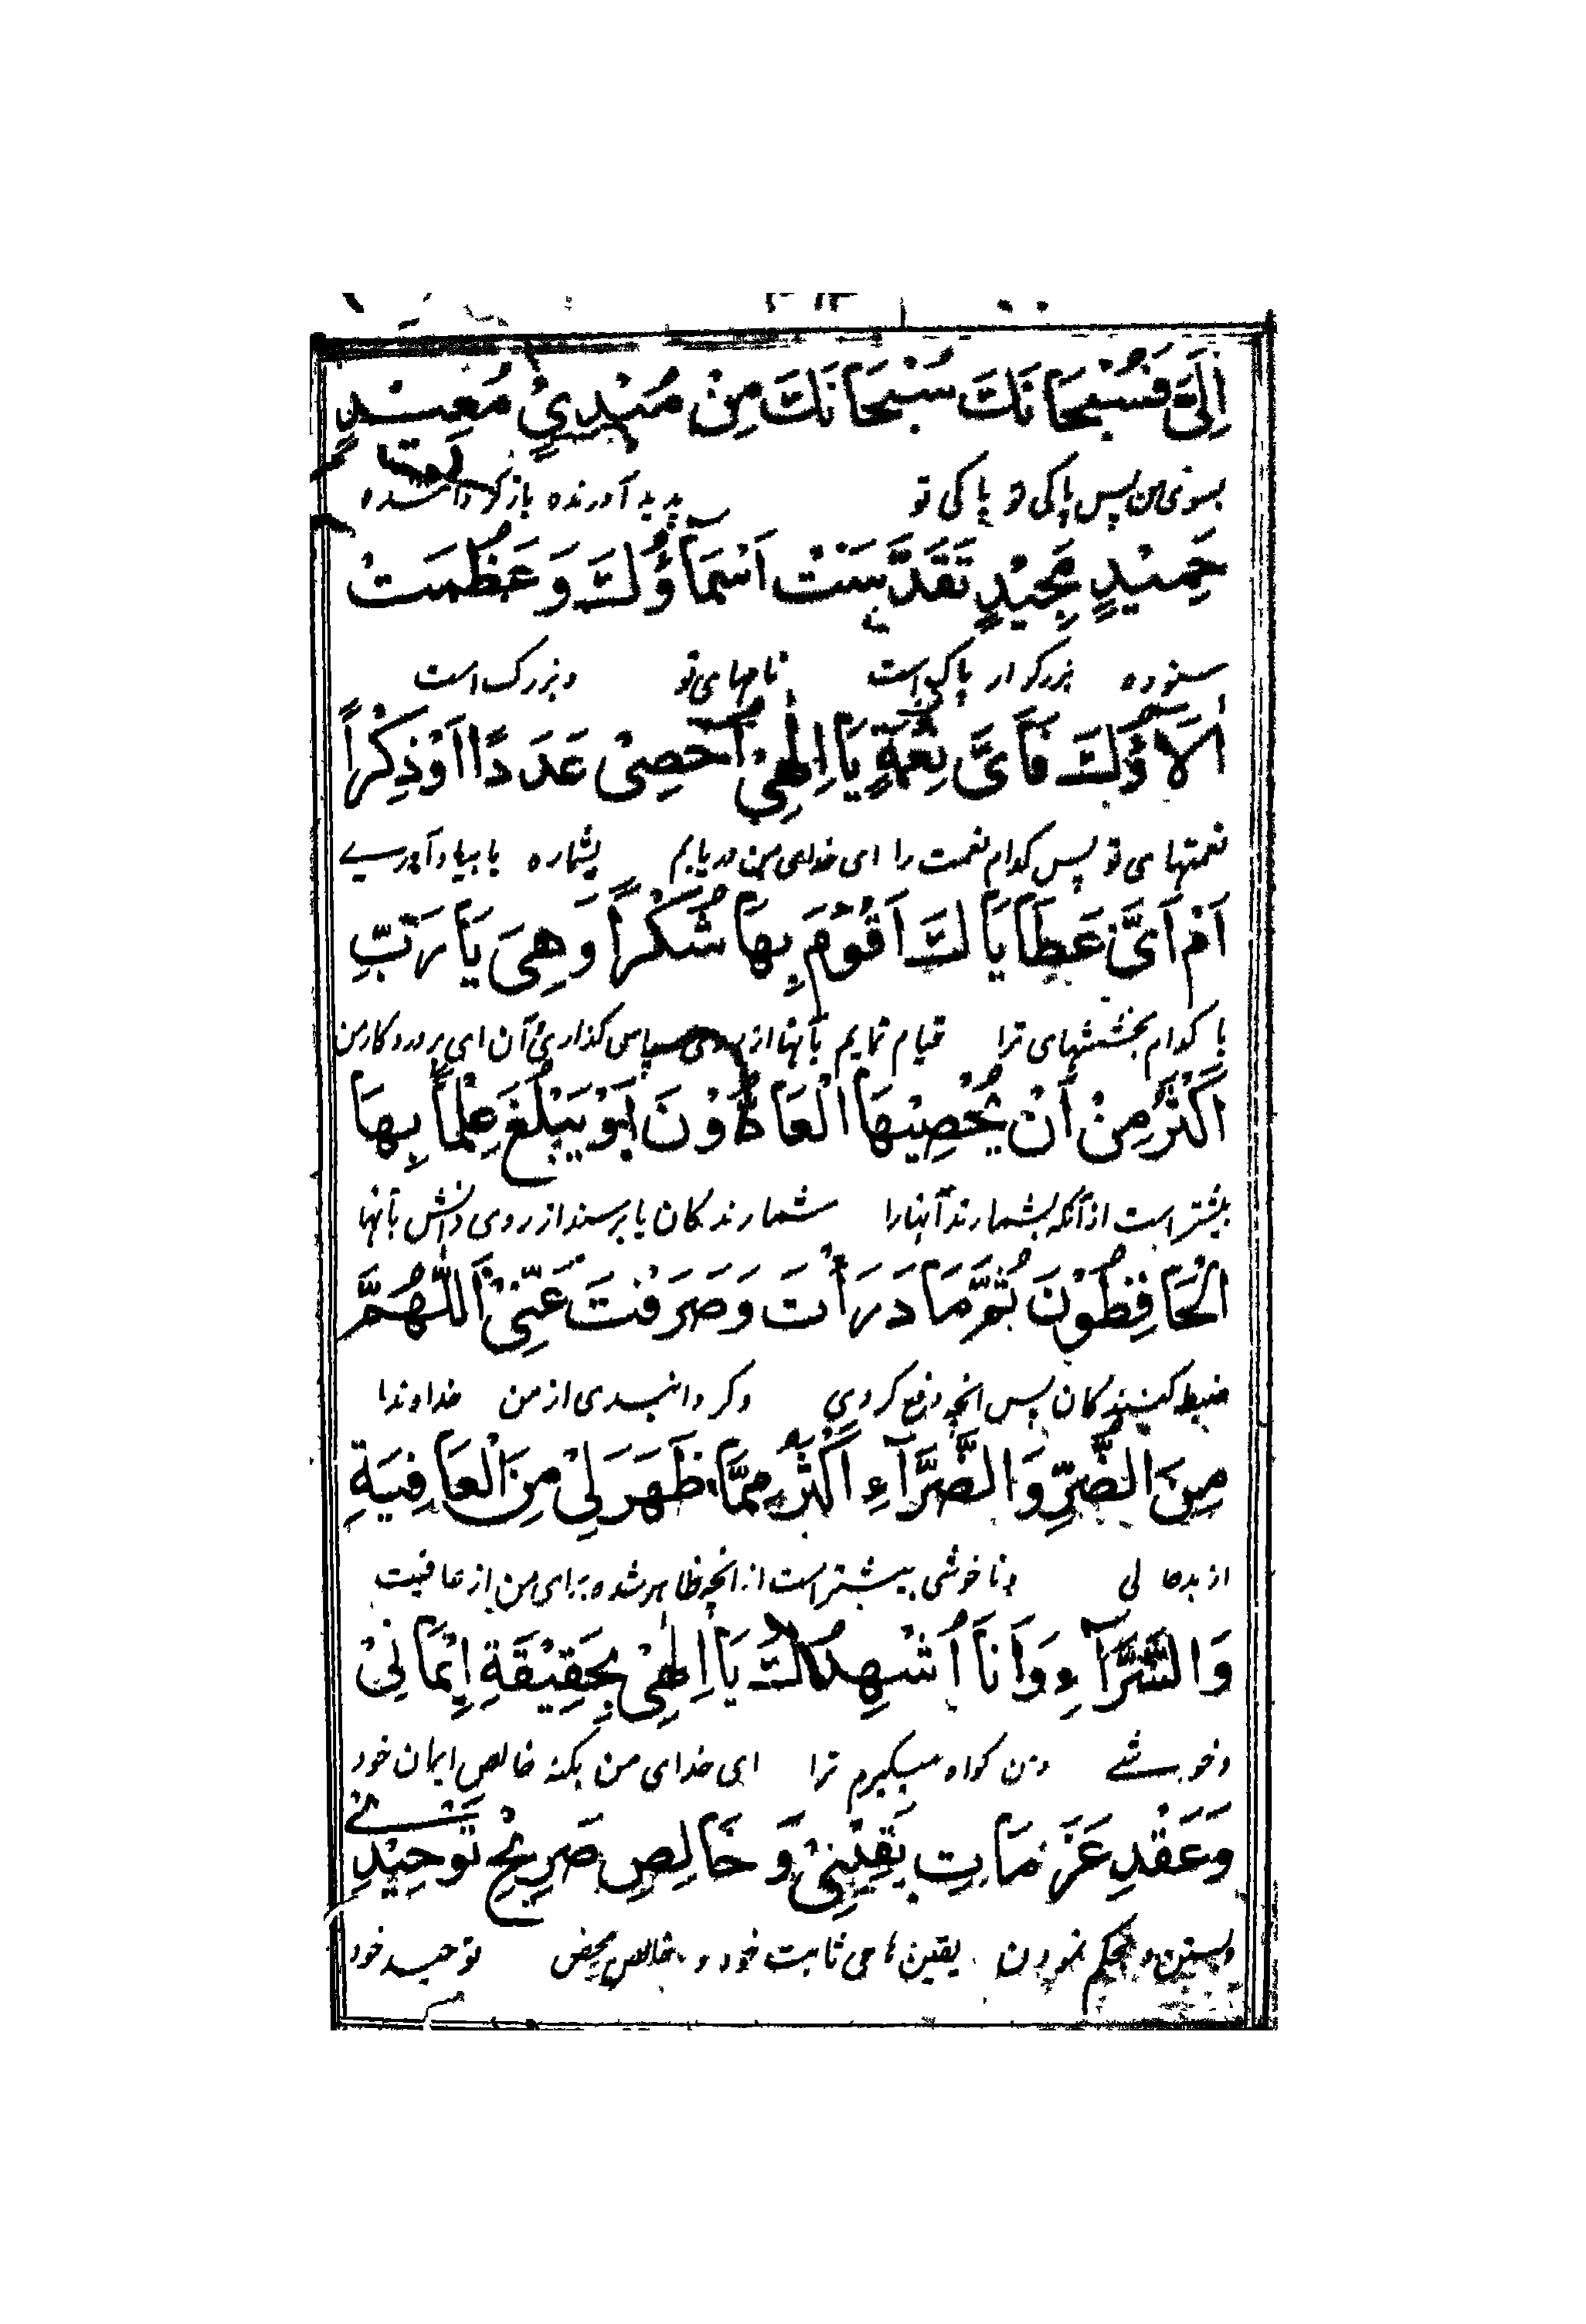 اِلَىَّ فَسُبْحَانَكَ سُبْحَانَكَ مِنْ مُبْدِئٍ مُعِيْدٍ
بسوی من پس پاکی تو پاکی تو پدید آورنده
حَمِيْدٍ مَجِيْدٍ تَقَدَّسَتْ اَسْمَآؤُكَ وَعَظُمَتْ
ستوده بزرکوار پاک است نامهای تو و بزرک است
اٰلَاۤؤُكَ فَاَىَّ نِعْمَةٍ يَا اِلٰهِىْ اُحْصِىْ عَدَدًا اَوْ ذِكْراً
نعمتهای تو پس کدام نعمت را ای خدای من دریابم بشماره یا بیاد آوری
اَمْ اَىَّ عَطَايَاكَ اَقُوْمُ بِهَا شُكْراً وَهِىَ يَا رَبِّ
یا کدام بخششهای ترا قیام نمایم بآنها از روی سپاس کذاری و آن ای پروردکار من
اَكْثَرُ مِنْ اَنْ يُحْصِيْهَا الْعَادُّوْنَ اَوْ يَبْلُغَ عِلْماً بِهَا
بیشتر است از آنکه بشمارند آنها را شمارندکان یا برسند از روی دانش بآنها
الْحَافِظُوْنَ ثُمَّ مَا دَرَأْتَ وَصَرَفْتَ عَنِّىْ اَللّٰهُمَّ
ضبط کنندکان پس انچه دفع کردی و کردانیدی از من خداوندا
مِنَ الضُّرِّ وَالضَّرَّآءِ اَكْثَرُ مِمَّا ظَهَرَ لِىْ مِنَ الْعَافِيَةِ
از بدحالی و ناخوشی بیشتر است از انچه ظاهر شده برای من از عافیت
وَالسَّرَّآءِ وَاَنَا اُشْهِدُكَ يَا اِلٰهِىْ بِحَقِيْقَةِ اِيْمَانِىْ
و خوشی و من کواه میکیرم ترا ای خدای من بکنه خالص ایمان خود
وَعَقْدِ عَزَمَاتِ يَقِيْنِىْ وَخَالِصِ صَرِيْحِ تَوْحِيْدِ
وبستن و محکم نمودن یقین های ثابت خود و خالص محض توحید خود